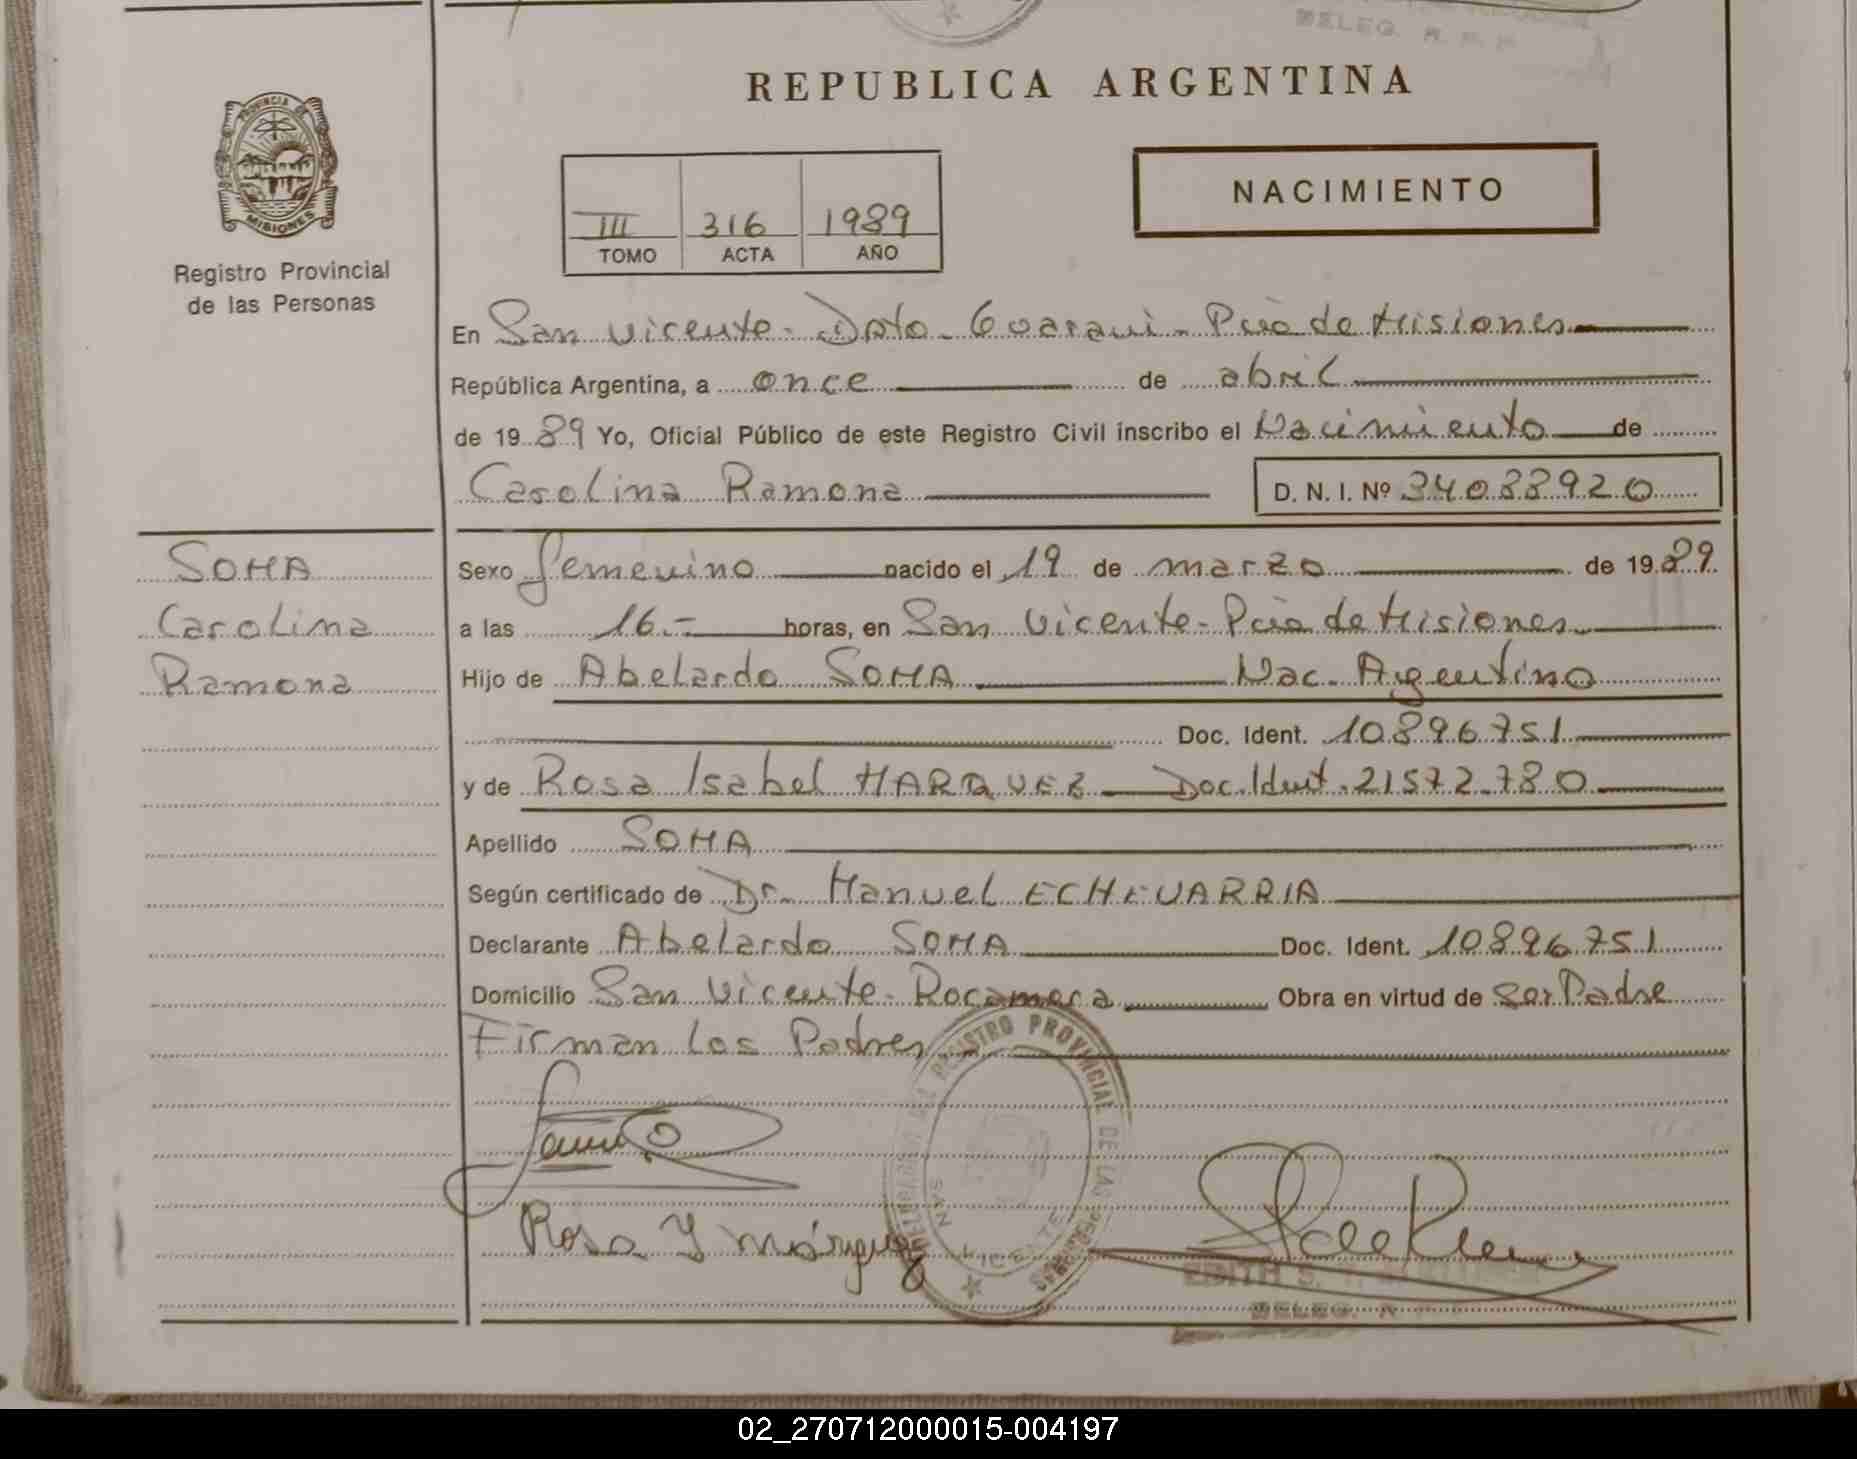 DELEG. R. P. P.
REPUBLICA ARGENTINA
PROVINCIA DE
MISIONES
Registro Provincial
de las Personas
III 316 1989
TOMO ACTA AÑO
NACIMIENTO
En San Vicente - Dpto. Guaraní - Pcia de Misiones
República Argentina, a once de abril
de 1989 Yo, Oficial Público de este Registro Civil inscribo el Nacimiento de
Carolina Ramona D. N. I. Nº 34088920
SOMA
Carolina
Ramona
Sexo femenino nacido el 19 de marzo de 1989.
a las 16.- horas, en San Vicente - Pcia de Misiones
Hijo de Abelardo SOMA Nac. Argentino
Doc. Ident. 10896751
y de Rosa Isabel MARQUEZ Doc. Ident. 21572.780
Apellido SOMA
Según certificado de Dr. Manuel ECHEVARRIA
Declarante Abelardo SOMA Doc. Ident. 10896751
Domicilio San Vicente - Rocamora Obra en virtud de ser Padre
Firman los Padres
REGISTRO PROVINCIAL DE LAS PERSONAS
SAN VICENTE
Rosa Y Márquez
EDITH S.
DELEG. R
02_270712000015-004197